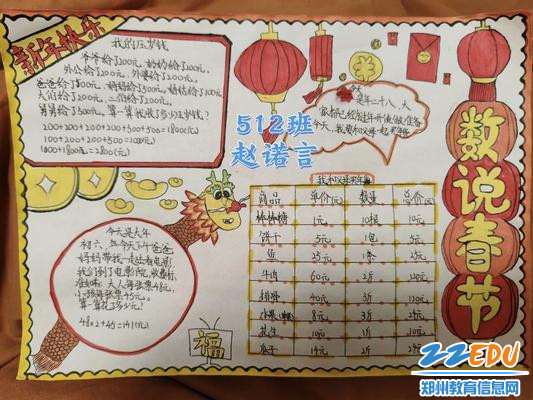 新年快乐
我的压岁钱
爷爷给了200元,奶奶给了100元,
外公给了200元,外婆给了200元,
爸爸给了800元,妈妈给了500元,姑姑给了100元
大伯给了200元,二伯给了200元,
舅舅给了300元,算一算我收了多少压岁钱?
1000+1800元=2800(元)
今天
是年二十八,大
今天,我要和父母一起买年货
512班
赵诺言
数说春节
我和父母买年货
商品 单价(元) 数量 总价(元)
棒棒糖 1元 10根 10元
饼干 5元 1包 5元
鱼 25元 1条 25元
牛肉 60元 2斤 120元
排骨 40元 3斤 120元
8元 3斤 24元
花生 10元 1斤 10元
瓜子 14元 2斤
今天是大年
初六,今天下午爸爸
妈妈带我一起去看电影,
我们到了电影院,收费标
准如下:大人每张票48元,
小孩每张票45元。
算一算花了多少元?
48×2+45=141(元)
福
22EDU
郑州教育信息网